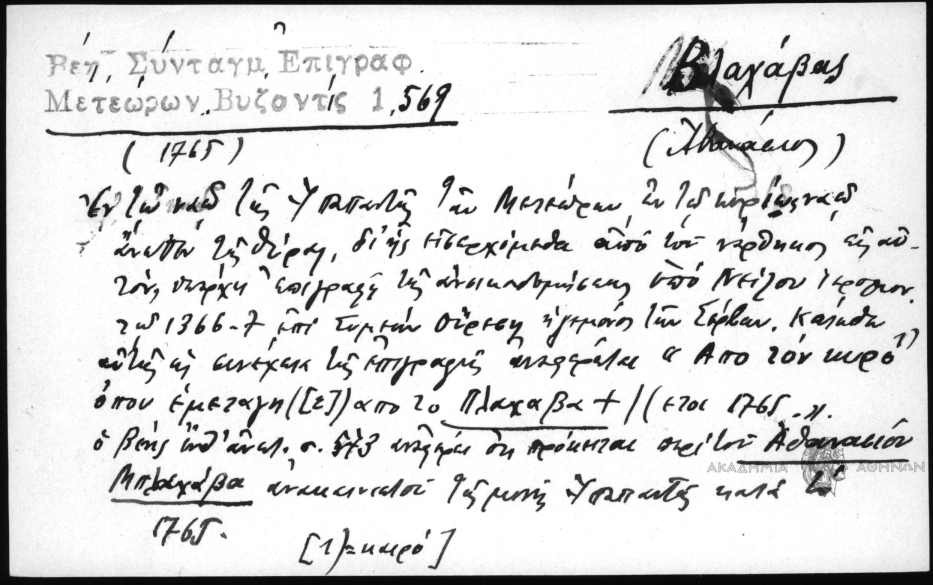 Βέη, Σύνταγμ. Ἐπιγραφ.
Μετεώρων. Βυζοντίς 1, 569
Βλαχάβας
(1765)
(Ἀθανάσιος)
Ἐν τῷ ναῷ τῆς Ὑπαπαντῆς τῶν Μετεώρων ἐν τῷ κυρίως ναῷ
ἄνωθεν τῆς θύρας, δι' ἧς εἰσερχόμεθα ἀπὸ τοῦ νάρθηκος εἰς αὐ-
τόν, ὑπάρχει ἐπιγραφὴ τῆς ἀνοικοδομήσεως ὑπὸ Νείλου ἱερομον.
τοῦ 1366-7 ἐπὶ Συμεών ἡγεμόνος τῶν Σέρβων. Κάτωθι
αὐτῆς ὡς συνέχεια τῆς ἐπιγραφῆς ἀναφέρεται "Απο τόν κερό 1)
ὁπου ἐμεταγη/([ε]) απο το Πλαχαβα + /(ετος 1765.".
ὁ Βέης ἔνθ' ἀνωτ. σ. 573 ἀναφέρει ὅτι πρόκειται περὶ τοῦ Ἀθανασίου
Μπλαχάβα ἀνακαινιστοῦ τῆς μονῆς Ὑπαπαντῆς κατὰ τὸ
1765.
[1)=καιρό]
ΑΚΑΔΗΜΙΑ ΑΘΗΝΩΝ